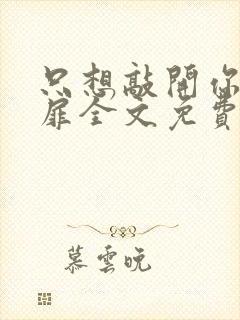 只想敲開你
扉全文免費
慕雲晚